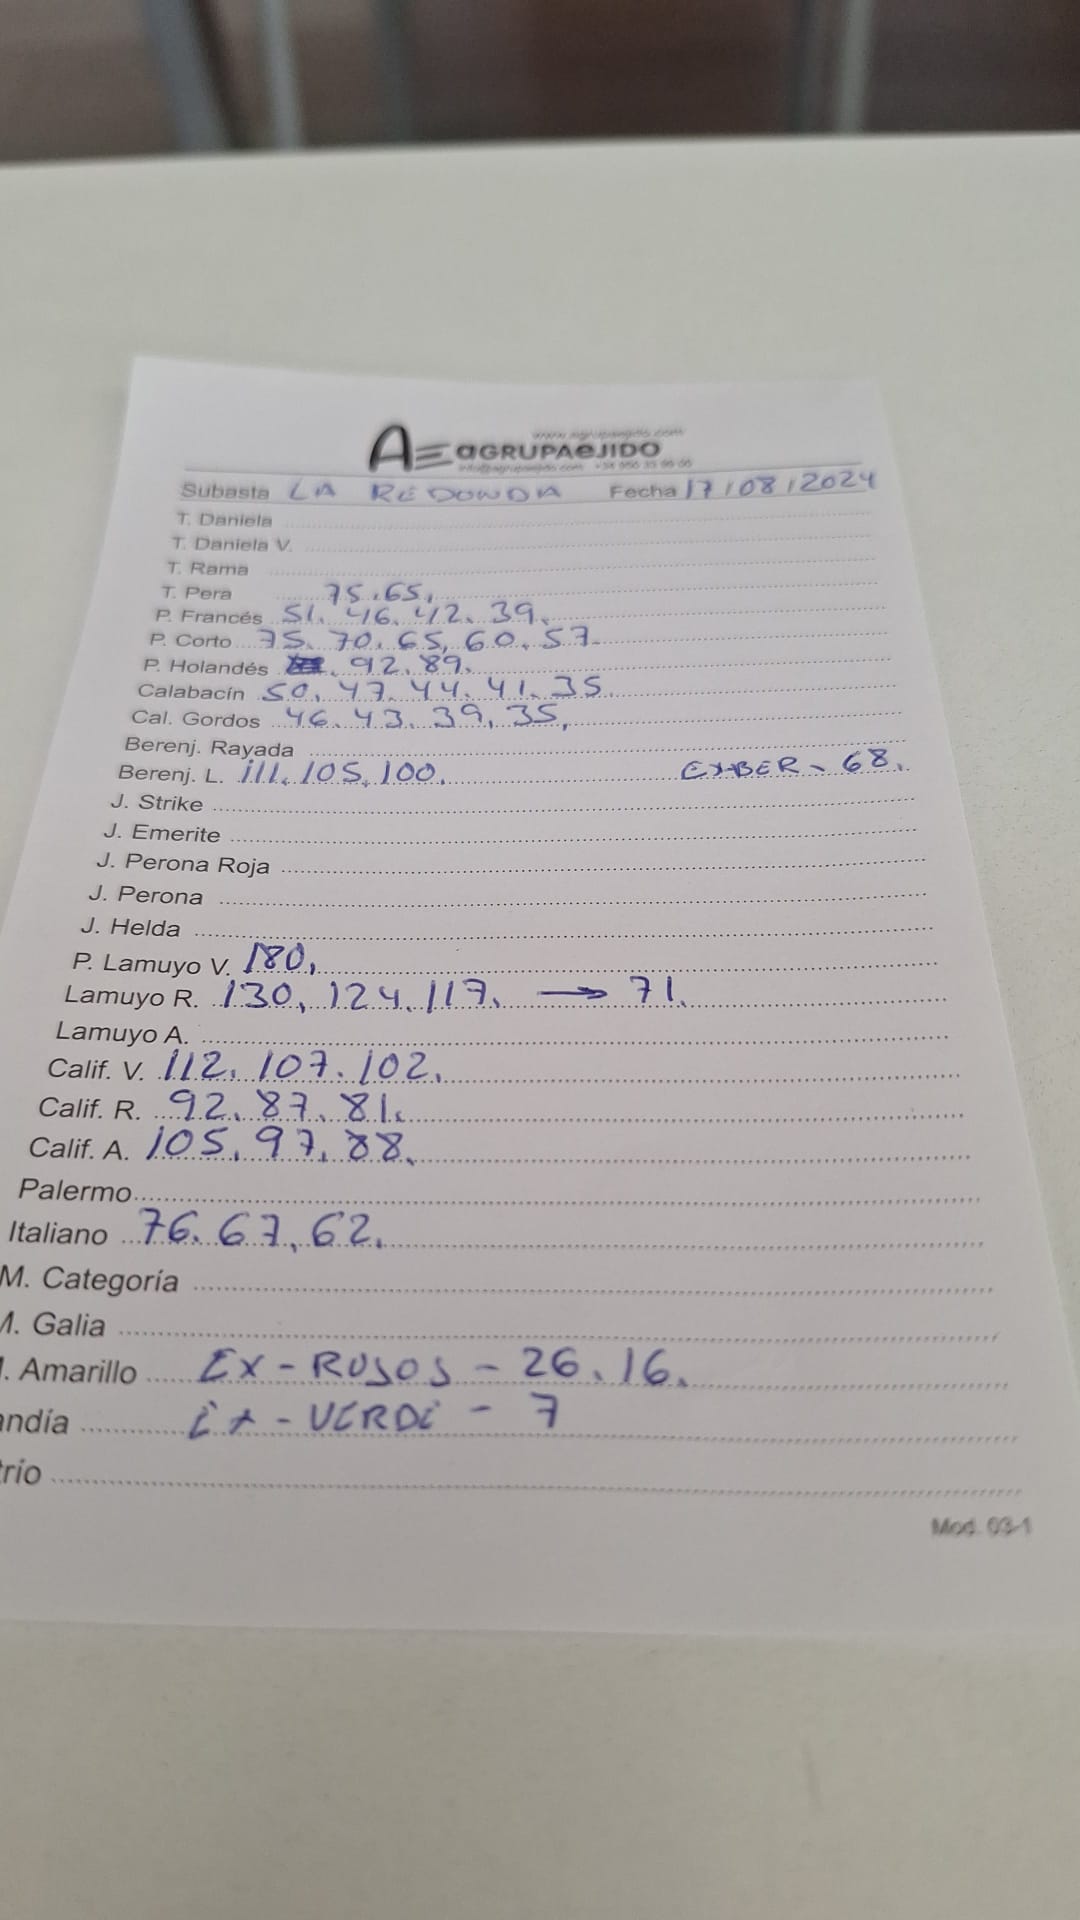 AE aGRUPAeJIDO
Subasta LA REDONDA Fecha 17/08/2024
T. Daniela
T. Daniela V.
T. Rama
T. Pera 75.65,
P. Francés 51. 46. 42. 39.
P. Corto 75. 70. 65, 60. 57-
P. Holandés 92. 89.
Calabacín 50. 47. 44. 41. 35.
Cal. Gordos 46. 43. 39. 35,
Berenj. Rayada
Berenj. L. 111. 105. 100. EX-BER - 68.
J. Strike
J. Emerite
J. Perona Roja
J. Perona
J. Helda
P. Lamuyo V. 180,
Lamuyo R. 130, 124. 117. → 71.
Lamuyo A.
Calif. V. 112. 107. 102.
Calif. R. 92. 87. 81.
Calif. A. 105. 97. 88.
Palermo
Italiano 76. 67, 62.
M. Categoría
M. Galia
. Amarillo EX-ROJOS - 26. 16.
andía EX-VERDE - 7
trio
Mod. 03-1